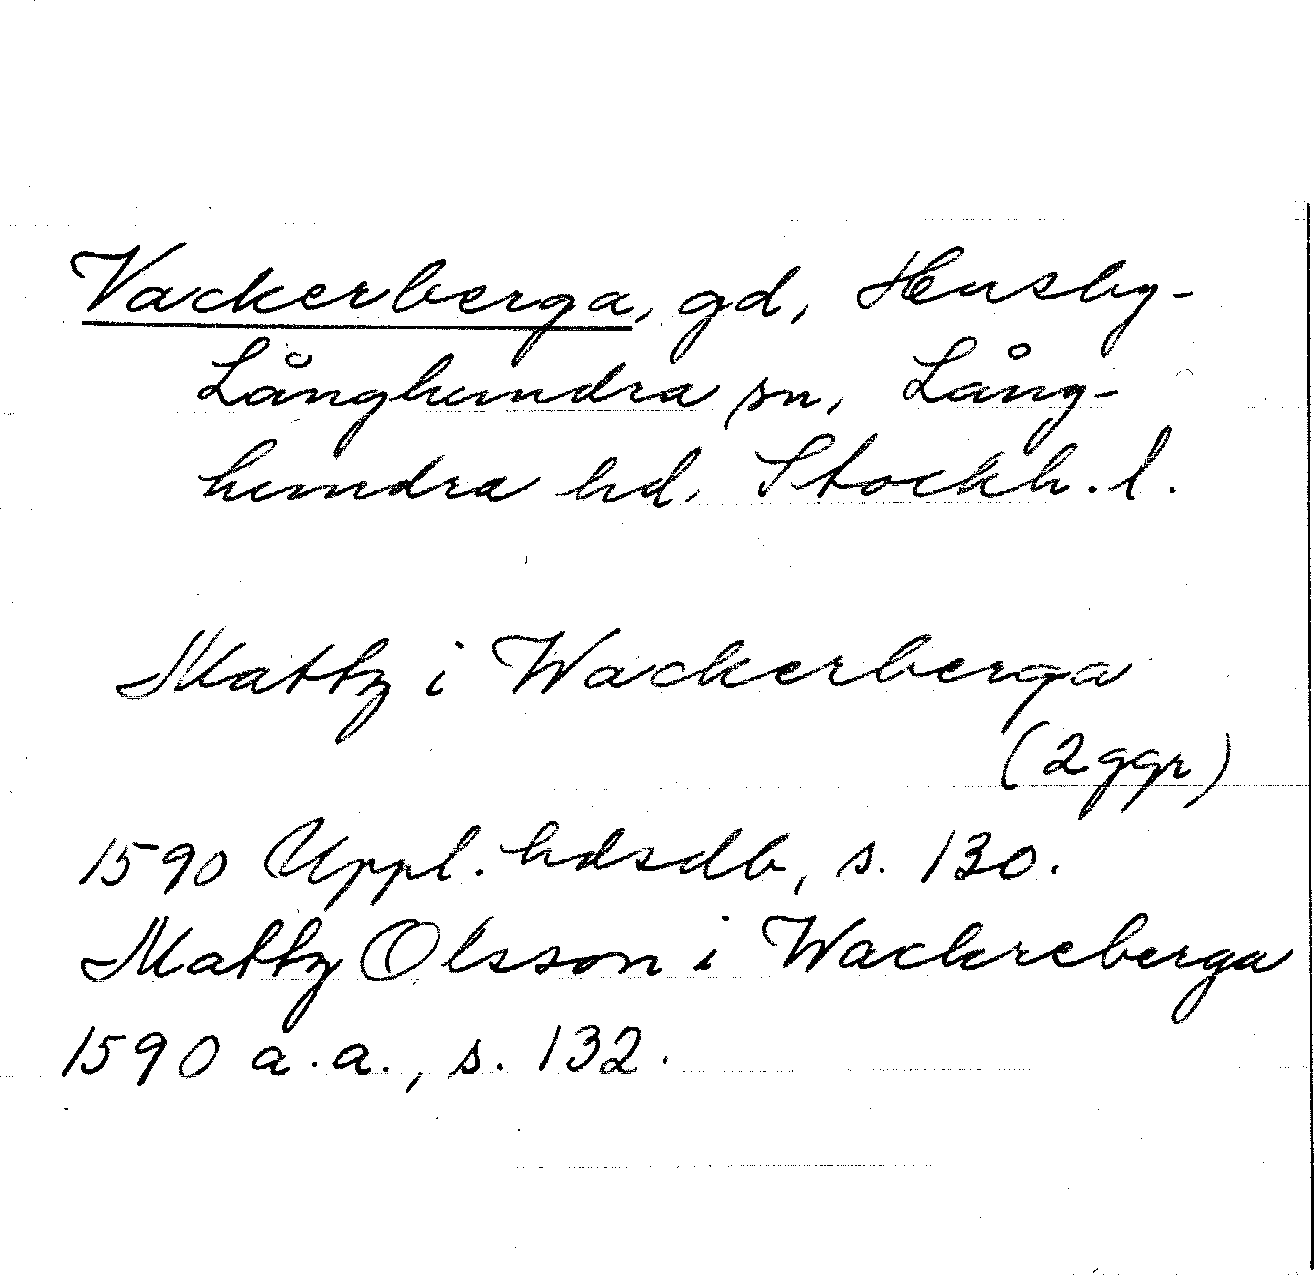 Vackerberga, gd, Husby-
Långhundra sn, Lång-
hundra hd, Stockh. l.
Mattz i Wackerberga
(2 ggr)
1590 Uppl. hdsdb, s. 130.
Mattz Olsson i Wackreberga
1590 a. a., s. 132.